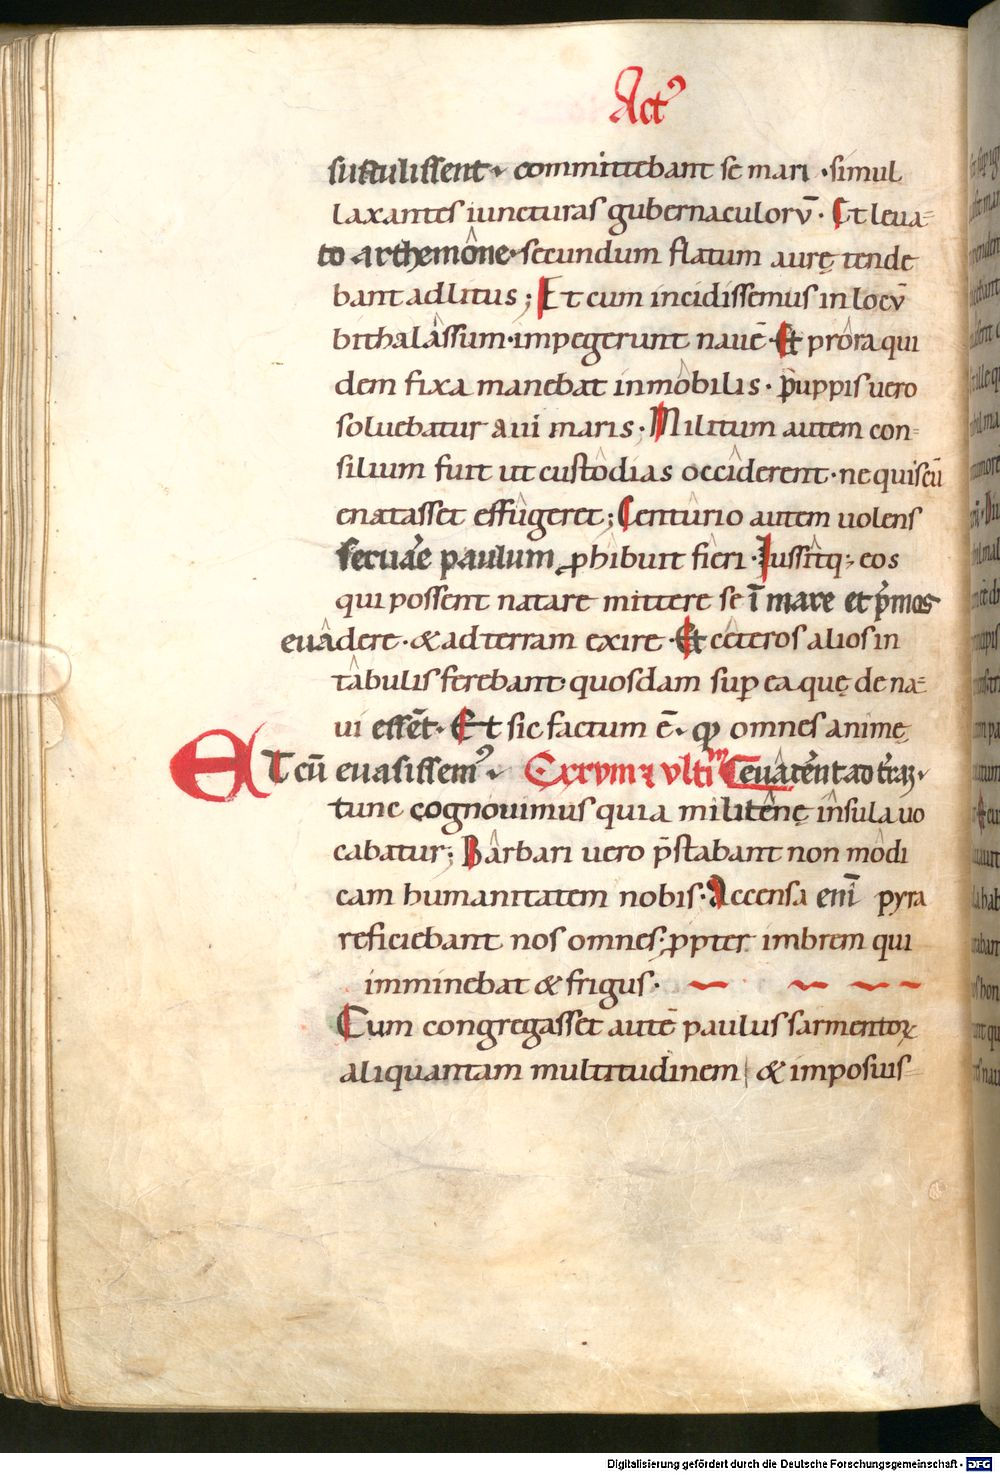 Act⁹
sustulissent · committebant se mari · simul
laxantes iuncturas gubernaculorū · Et leua=
to arthemône · secundum flatum aurę tende
bant ad litus ; Et cum incidissemus in locū
bithalâssum · impegerunt nauē · Et prôra qui
dem fixa manebat inmôbilis · puppis uero
soluebatur a ui maris · Militum autem con=
silium fuit ut custôdias occîderent · ne quis cū
enatasset effûgeret ; Centûrio autem uolens
seruare paulum ꝓhibuit fieri · Iussîtq; eos
qui possent natare mittere se ī mare et p̄mos
euâdere · & ad terram exire · Et cêteros alios in
tâbulis ferebant · quosdam sup̄ ea quę de na=
ui essēt · Et sic factum ē · qđ omnes animę
ET cū euasissem⁹ · euaderent ad
tunc cognouimus quia militênę însula uo
cabatur ; Bârbari uero p̄stabant non môdi
cam humanitatem nobis · Accensa enī pyra
reficiebant nos omnes · ꝓpter imbrem qui
imminebat & frigus ·
Cum congregasset autē paulus sarmentoꝝ
aliquantam multitudinem & imposuis=
Digitalisierung gefördert durch die Deutsche Forschungsgemeinschaft - DFG